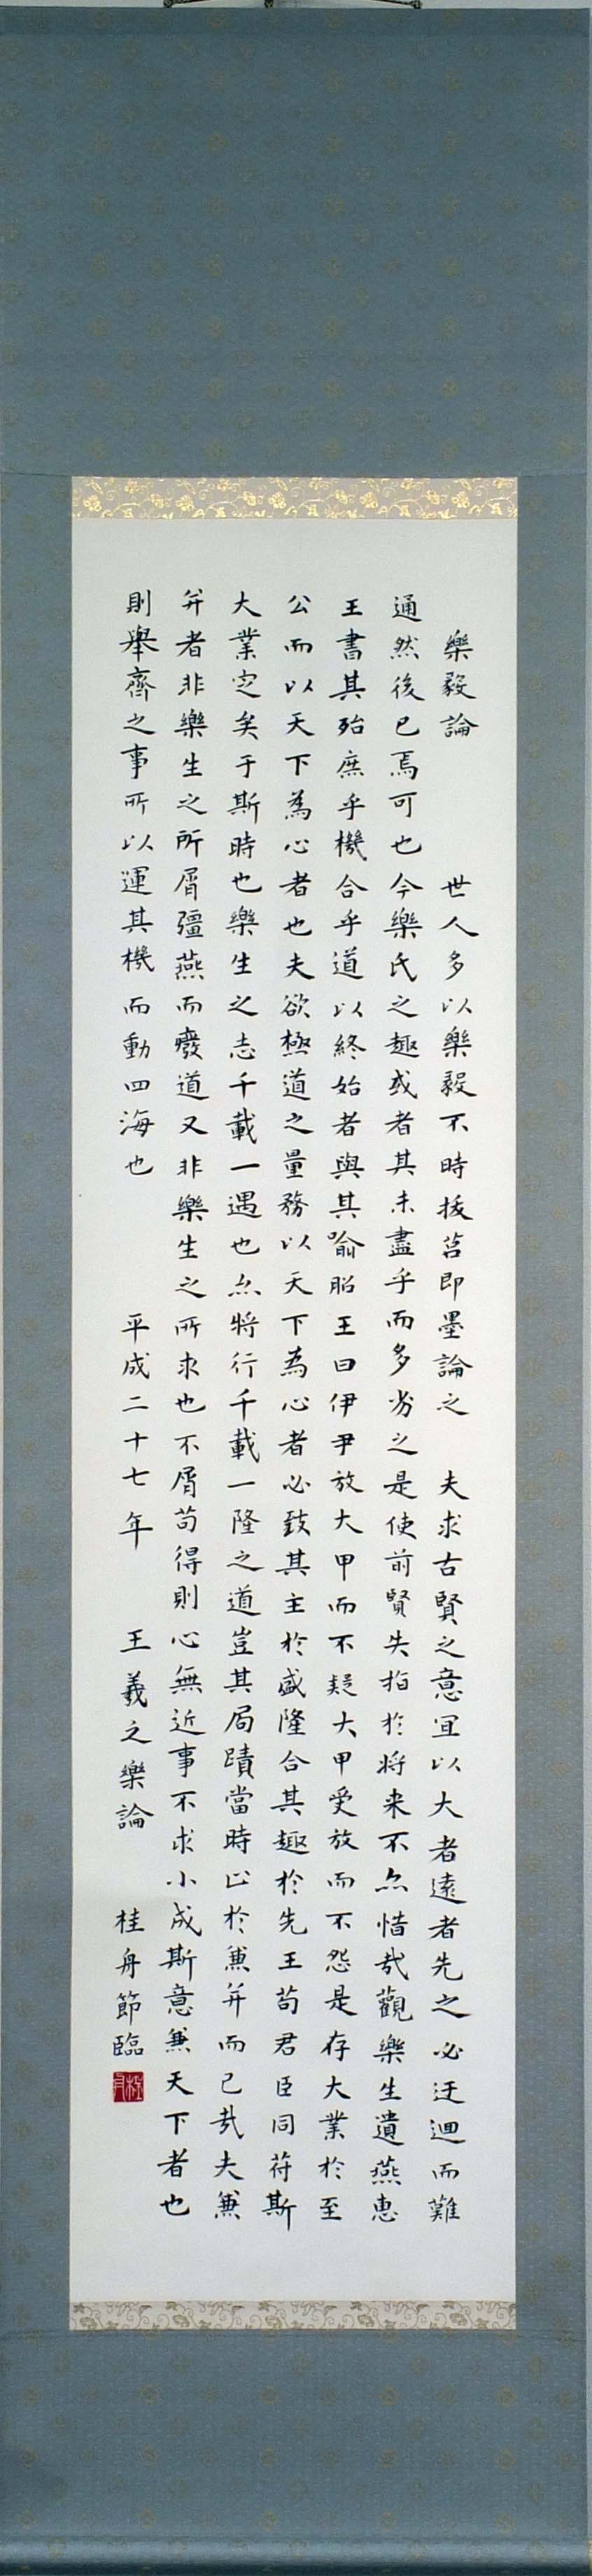 樂毅論　世人多以樂毅不時拔莒即墨論之　夫求古賢之意宜以大者遠者先之必迂迴而難
通然後已焉可也今樂氏之趣或者其未盡乎而多劣之是使前賢失指於将来不亦惜哉觀樂生遺燕惠
王書其殆庶乎機合乎道以終始者與其喻昭王曰伊尹放大甲而不疑大甲受放而不怨是存大業於至
公而以天下為心者也夫欲極道之量務以天下為心者必致其主於盛隆合其趣於先王苟君臣同苻斯
大業定矣于斯時也樂生之志千載一遇也亦將行千載一隆之道豈其局蹟當時止於兼并而已哉夫兼
并者非樂生之所屑彊燕而癈道又非樂生之所求也不屑苟得則心無近事不求小成斯意兼天下者也
則舉齊之事所以運其機而動四海也　平成二十七年　王羲之樂論　桂舟節臨